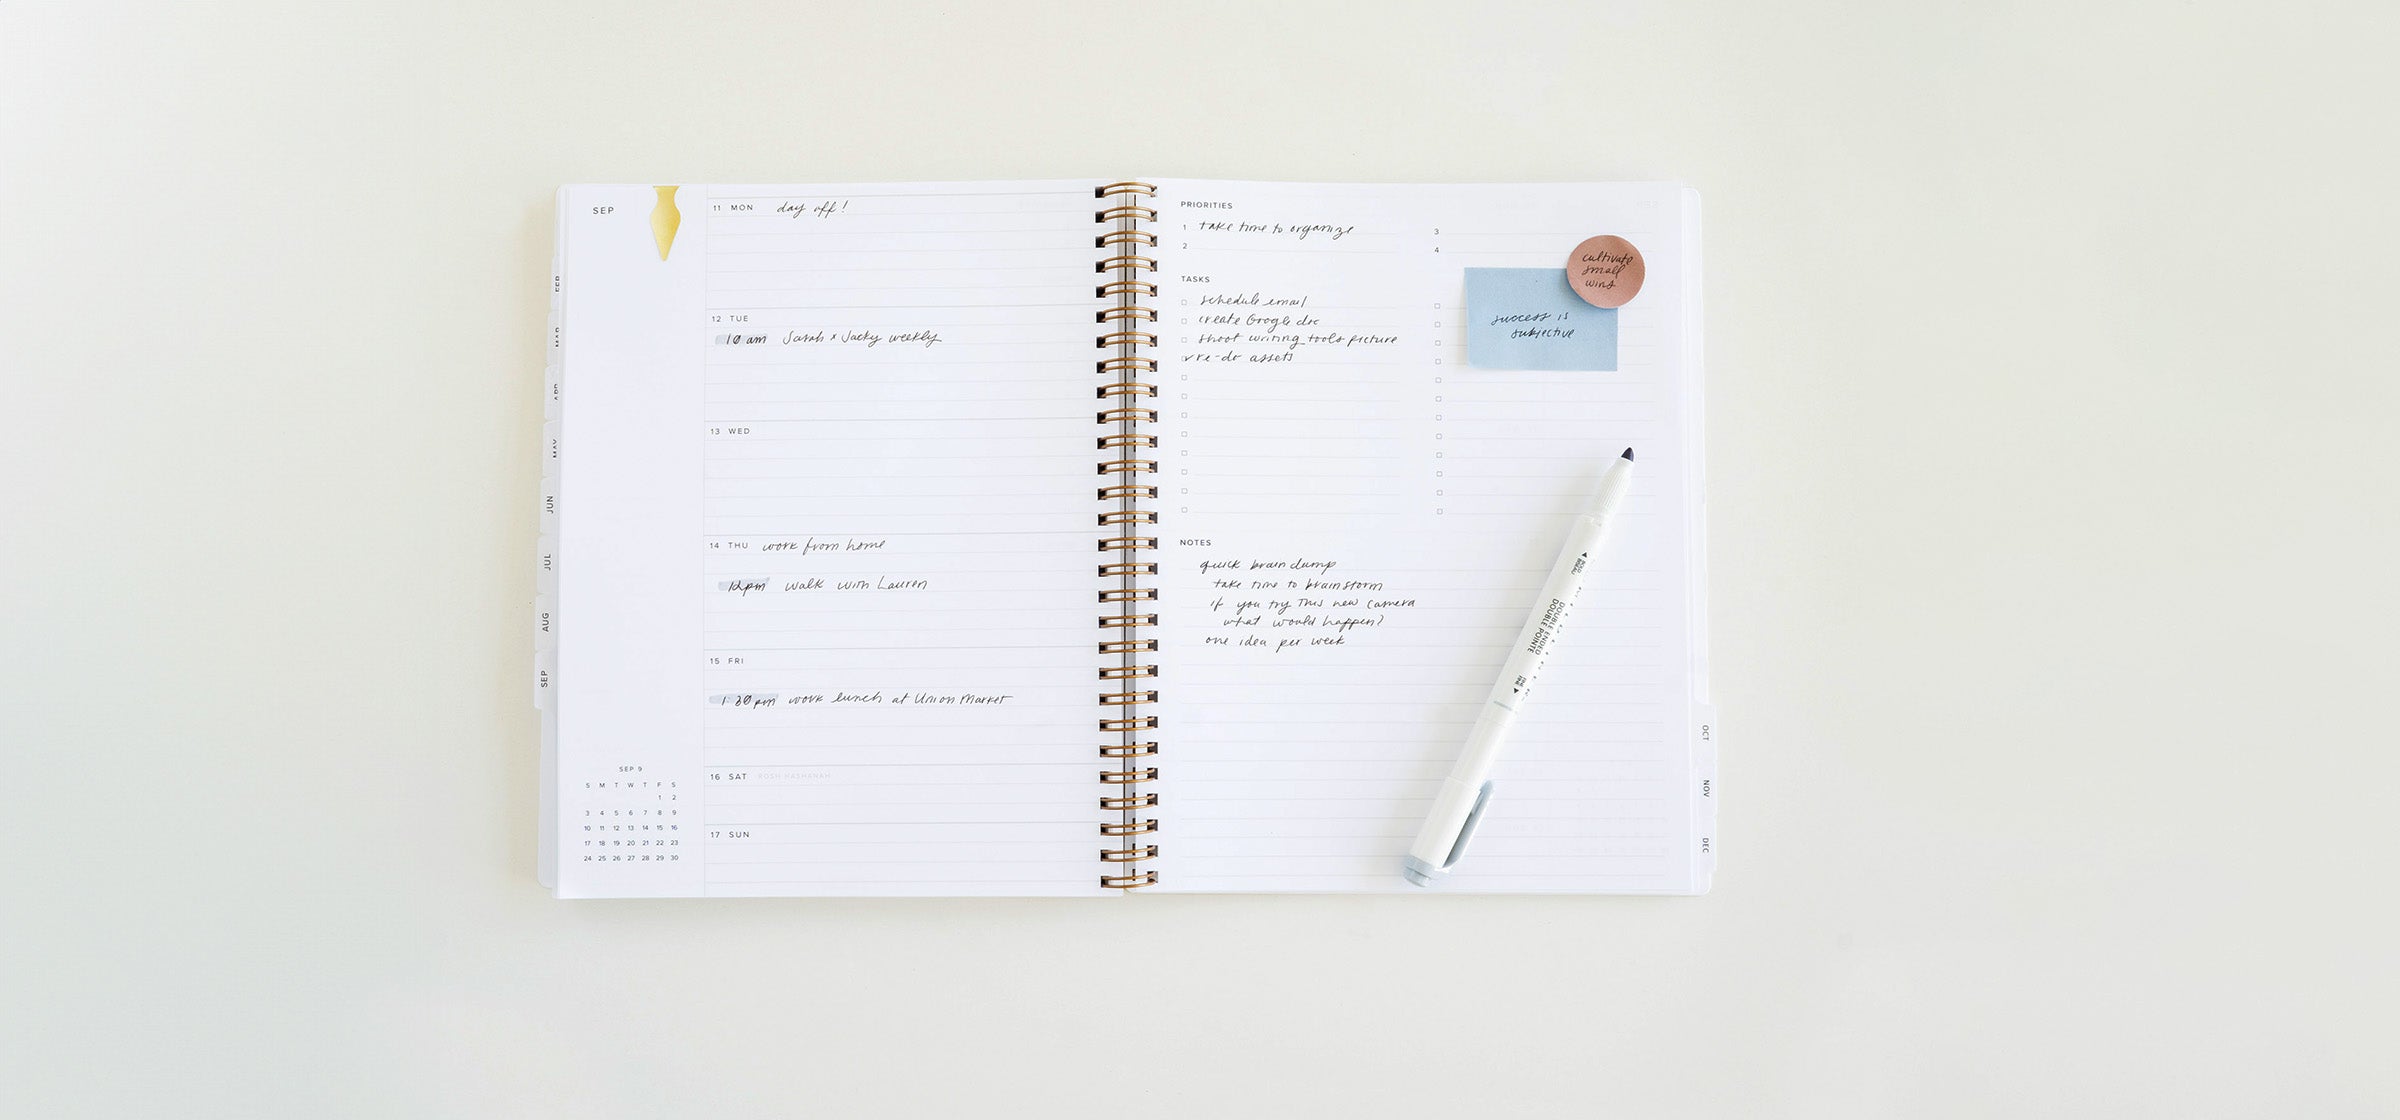 SEP
11 MON day off!
12 TUE
10 am Sarah x Jacky weekly
13 WED
14 THU work from home
12pm walk with Lauren
15 FRI
1:30 pm work lunch at Union Market
16 SAT ROSH HASHANAH
17 SUN
SEP 9
S M T W T F S
1 2
3 4 5 6 7 8 9
10 11 12 13 14 15 16
17 18 19 20 21 22 23
24 25 26 27 28 29 30
FEB
MAR
APR
MAY
JUN
JUL
AUG
SEP
PRIORITIES
1 take time to organize
2
3
4
TASKS
schedule email
create Google doc
shoot writing tools picture
re-do assets
cultivate
small
wins
success is
subjective
NOTES
quick brain dump
take time to brainstorm
if you try this new camera
what would happen?
one idea per week
DOUBLE ENDED
DOUBLE POINTE
OCT
NOV
DEC